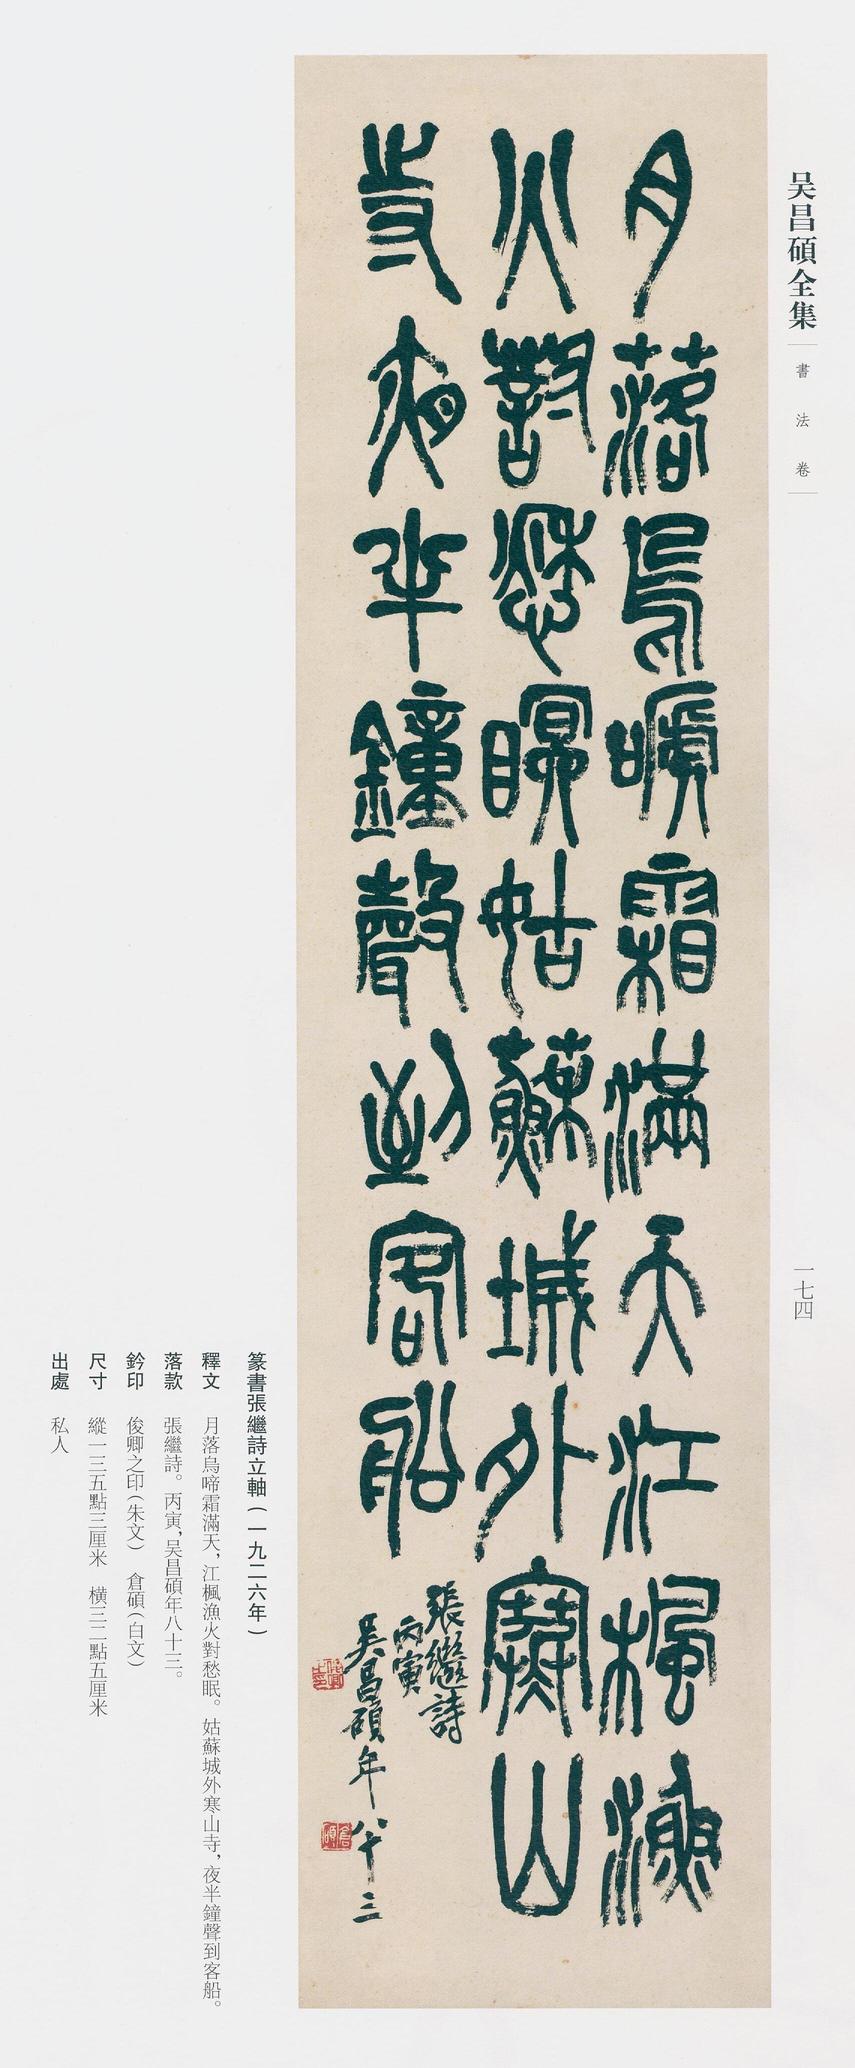 吴昌碩全集
書法卷
一七四
月落烏嗁霜滿天江楓漁
火對愁瞑姑蘇城外寒山
寺夜半鐘聲到客船
張繼詩
丙寅
吴昌碩年八十三
倉碩
篆書張繼詩立軸(一九二六年)
釋文 月落烏啼霜滿天,江楓漁火對愁眠。姑蘇城外寒山寺,夜半鐘聲到客船。
落款 張繼詩。丙寅,吴昌碩年八十三。
鈐印 俊卿之印(朱文) 倉碩(白文)
尺寸 縱一三五點三厘米 橫三二點五厘米
出處 私人